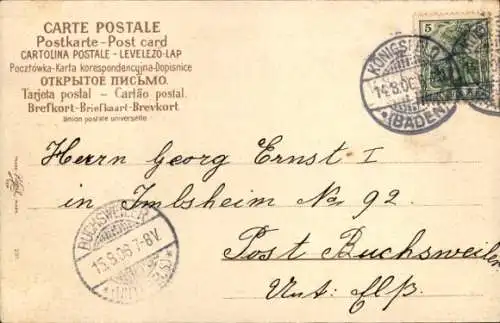 CARTE POSTALE
Postkarte - Post card
CARTOLINA POSTALE - LEVELEZŐ-LAP
Pocztówka-Karta korespondencyjna-Dopisnice
ОТКРЫТОЕ ПИСЬМО.
Tarjeta postal — Cartão postal.
Brefkort-Briefkaart-Brevkort.
Union postale universelle
5
KÖNIGSFELD
14.9.06
*(BADEN)
Herrn Georg Ernst I
in Imbsheim No 92.
Post Buchsweiler
Unt: Elß.
BUCHSWEILER
15.9.06 7-8V.